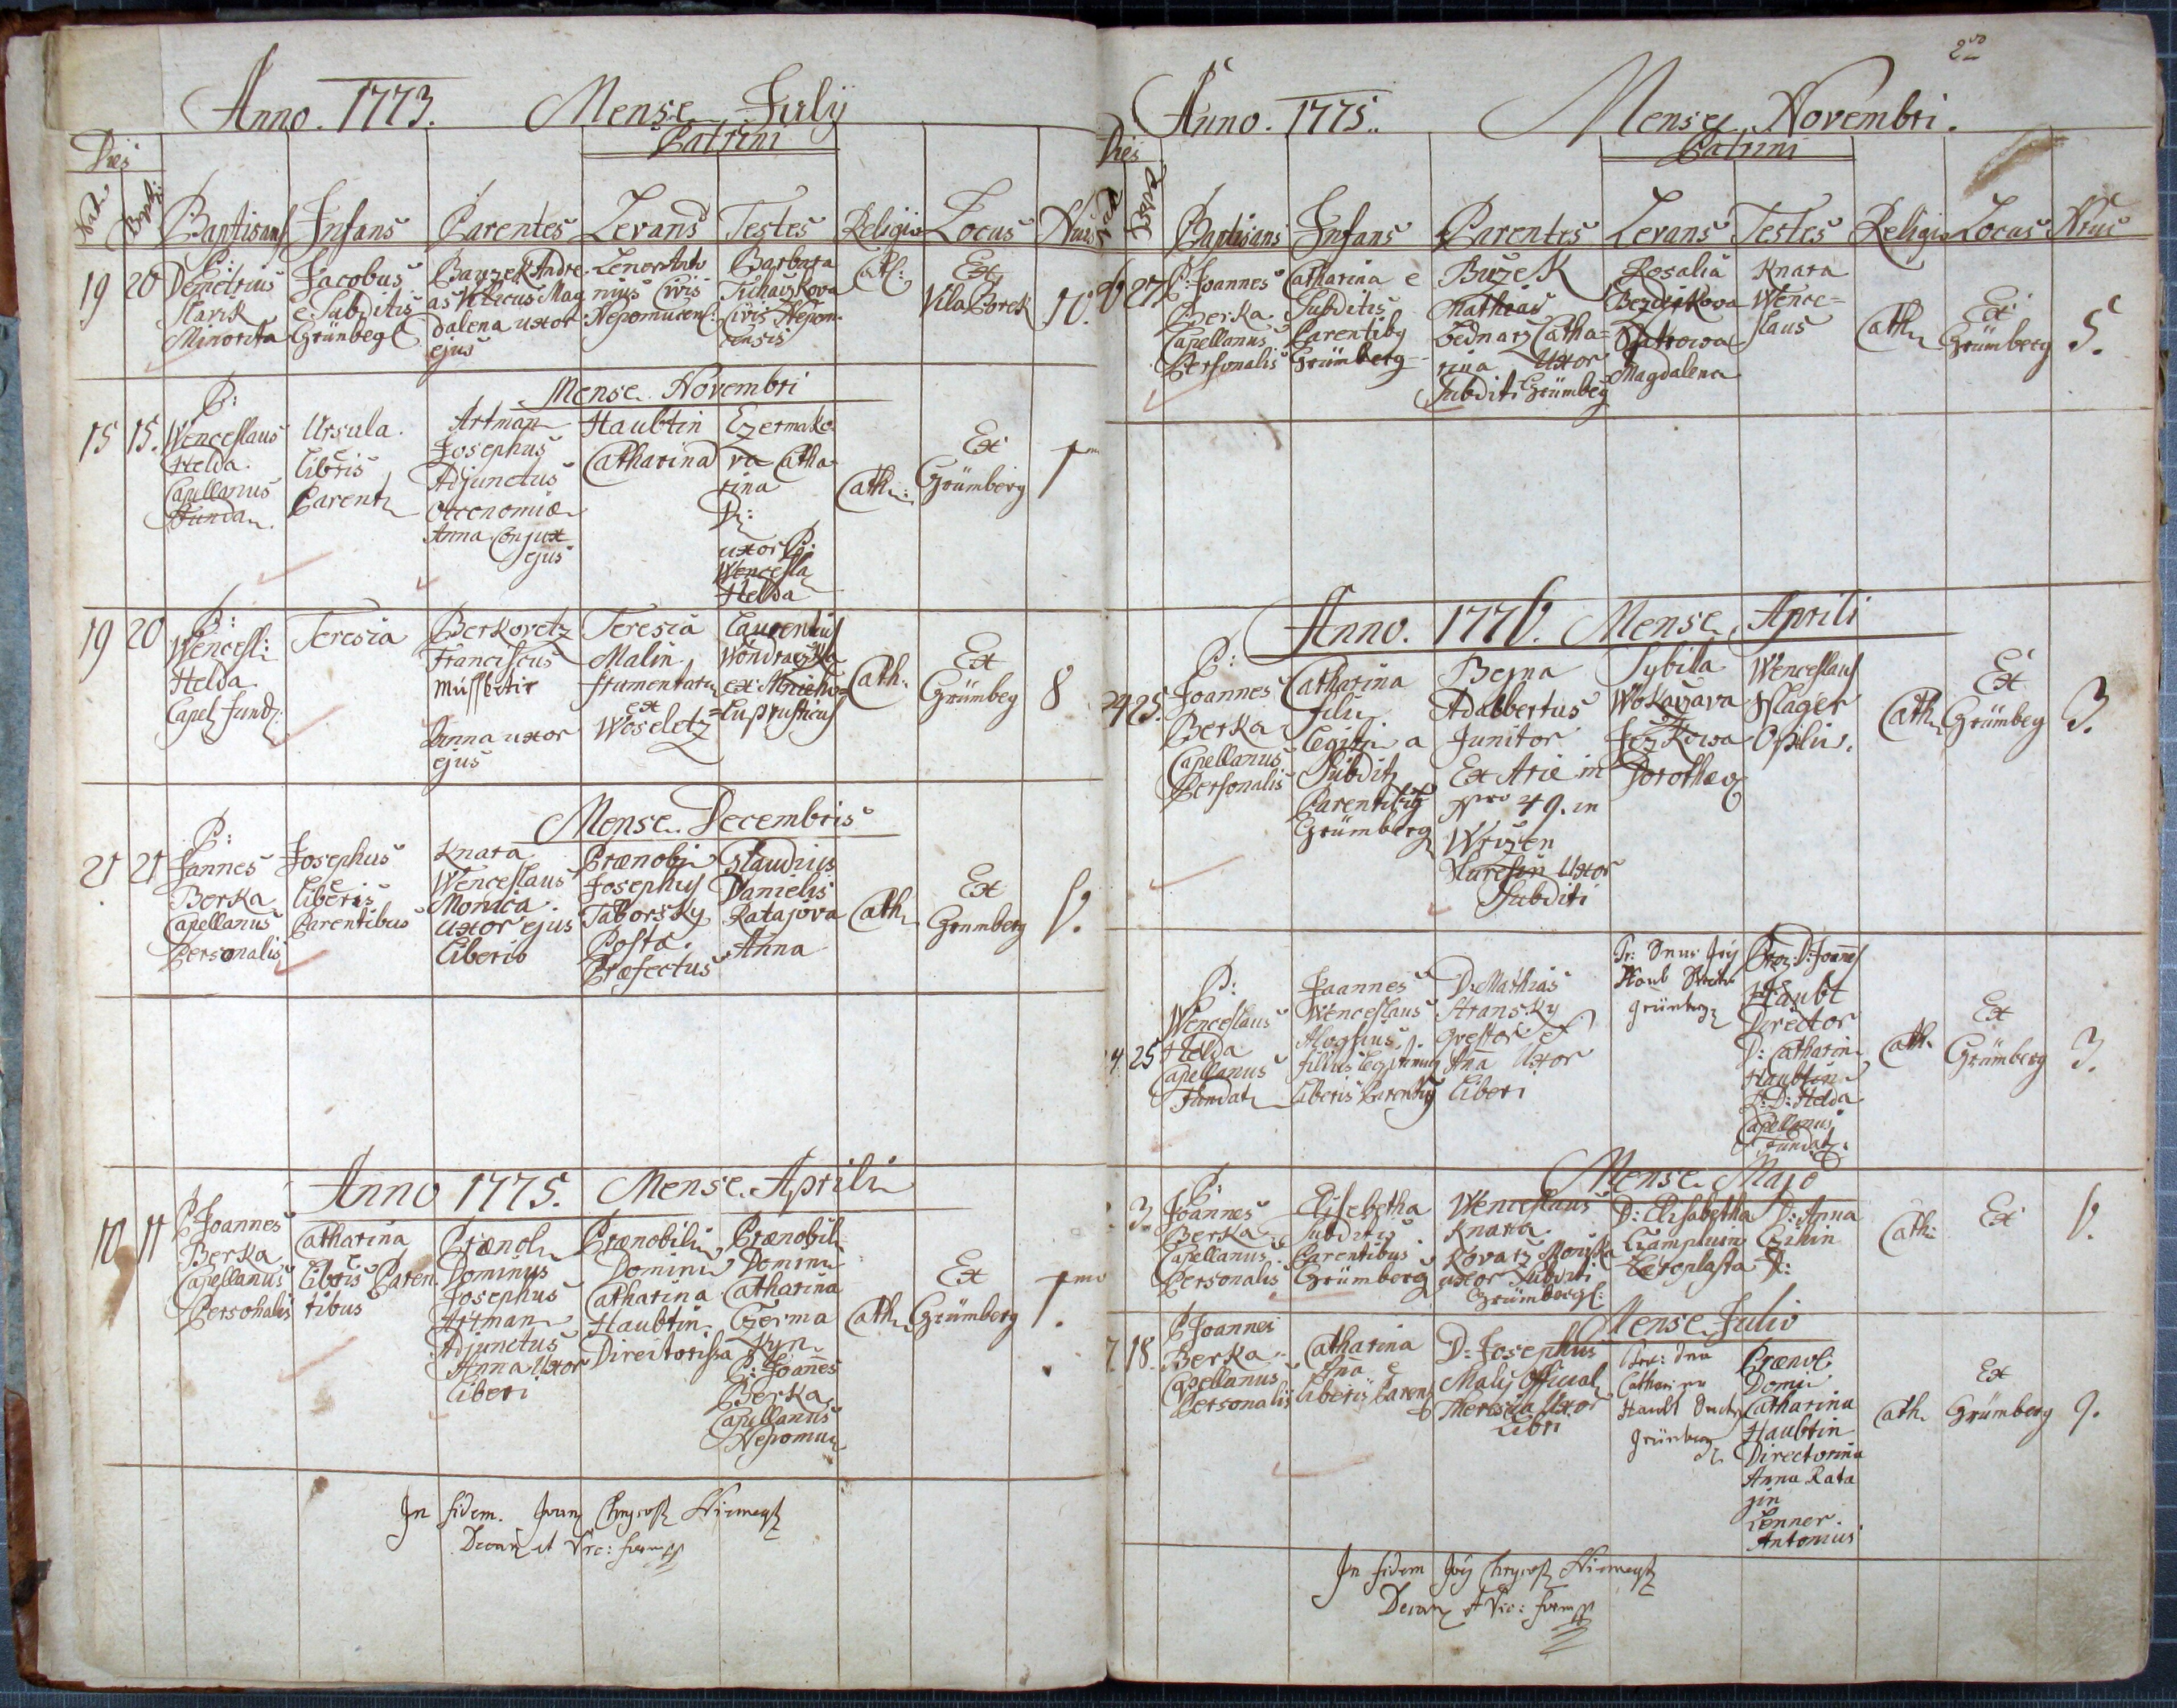 Anno. 1773. Mense July
Dies
Patrini
Nat.
Bapt:
Baptisans Infans Parentes Levans Testes Religio Locus Nrus
19 20
P:
Demetrius
Slavik
Minorita
Jacobus
e Subditis
Grünbegl
Bauzek Andre
as Villicus Mag
dalena uxor
ejus
Lenor Anto
nius Civis
Nepomucens:
Barbara
Civis Nepom-
censis
Cat:
Ex
Vila Borek
10.
Mense Novembri
15 15.
P:
Wenceslaus
Helda
Capellanus
Fundat
Ursula
Libris
Parent
Artman
Josephus
Adjunctus
Oeconomiae
Anna Conjux
ejus
Haubtin
Catharina
Czermako
va Catha
rina
D:
uxor P:
Wencesla
Helda
Cath:
Ex
Grümberg
1
19 20
P:
Wencesl:
Helda
Capel Fund:
Teresia
Berkovetz
Franciscus
Anna uxor
ejus
Teresia
Malin
frumentari
ex
Woseletz
Laurentius
Wondraczka
rusticus
Cath:
Ex
Grümbeg
8
Mense Decembris
21 21
P:
Joannes
Berka
Capellanus
Personalis
Josephus
e
Liberis
Parentibus
Knara
Wenceslaus
Monica
uxor ejus
Liberis
Prænobi
Josephus
Taborsky
Posta.
Præfectus
Claudius
Danielis
Ratajova
Anna
Cath
Ex
Grumberg
6.
Anno 1775. Mense Aprili
10 11
P Joannes
Berka
Capellanus
Personalis
Catharina
e
Libris Paren
tibus
Prænob
Dominus
Josephus
Artman
Adjunctus
Anna Uxor
Liberi
Prænobili
Domini
Catharina
Haubtin
Directorissa
Prænobil
Domini
Catharina
Czerma
kyn
P: Joannes
Berka
Capellanus
Nepomu
Cath
Ex
Grümberg
1mo
In fidem.
Decan et Vic: foran
2do
Anno. 1775. Mense Novembri.
Dies
Patrini
Baptisans Infans Parentes Levans Testes Religio Locus Nrus
26 27
P: Joannes
Berka
Capellanus
Personalis
Catharina e
Subditis
Parentibg
Grümberg
Buzek
Mathias
Bednarz Catha=
rina Uxor
Subditi Grümbeg
Rosalia
Bezdiekova
Magdalena
Knara
Wence=
slaus
Cath
Ex
Grümberg
5.
Anno. 1776. Mense Aprili
24 25.
P:
Joannes
Berka
Capellanus
Personalis
Catharina
filia
legitima
Subdit
Parentibg
Grümberg
Begna
Adalbertus
Junitor
Ex Arie in
Nro 49. in
Uxor
Subditi
Sybilla
Dorothea
Wenceslaus
Opilio.
Cath
Ex
Grümbeg
3.
25
P:
Wenceslaus
Helda
Capellanus
Fundat
Joannes
Wenceslaus
Aloysius
filius legitimus
Liberis Parentibg
D: Mathias
Stransky
Questor et
Ana Uxor
Liberi
Director
D: Catharin
Haubtin
P: D: Helda
Capellanus
Fundat.
Cath
Ex
Grümberg
3.
Mense Majo
3
P:
Joannes
Berka
Capellanus
Personalis
Elisebetha
Subditis
Parentibus
Grümberg
Wenceslaus
Knara
Kovarz Monika
uxor Subditi
Grümbergs:
D: Elisabetha
D: Anna
Cath:
Ex
6.
Mense Julio
18.
P Joannes
Berka
Capellanus
Personalis
Catharina
Ana e
Liberis Parent
D: Josephus
Malij Official
Theresia Uxor
Libri
Catharina
Prænob
Domi
Catharina
Haubtin
Directorina
Anna Rata
jin
Lenner
Antonius
Cath
Ex
Grümberg
9.
In fidem
Decan et Vic: foran